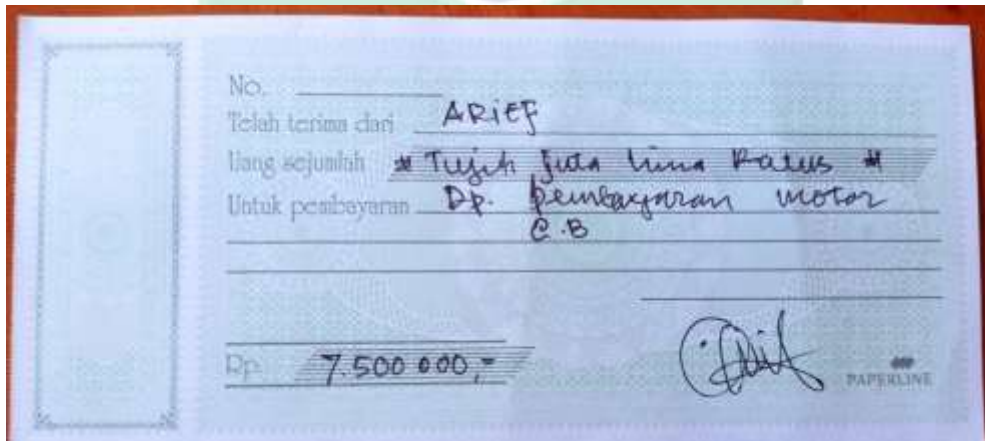 No.
Telah terima dari ARIEF
Uang sejumlah # Tujuh Juta Lima Ratus #
Untuk pembayaran Dp. pembayaran motor
C.B
Rp. 7.500 000,-
PAPERLINE